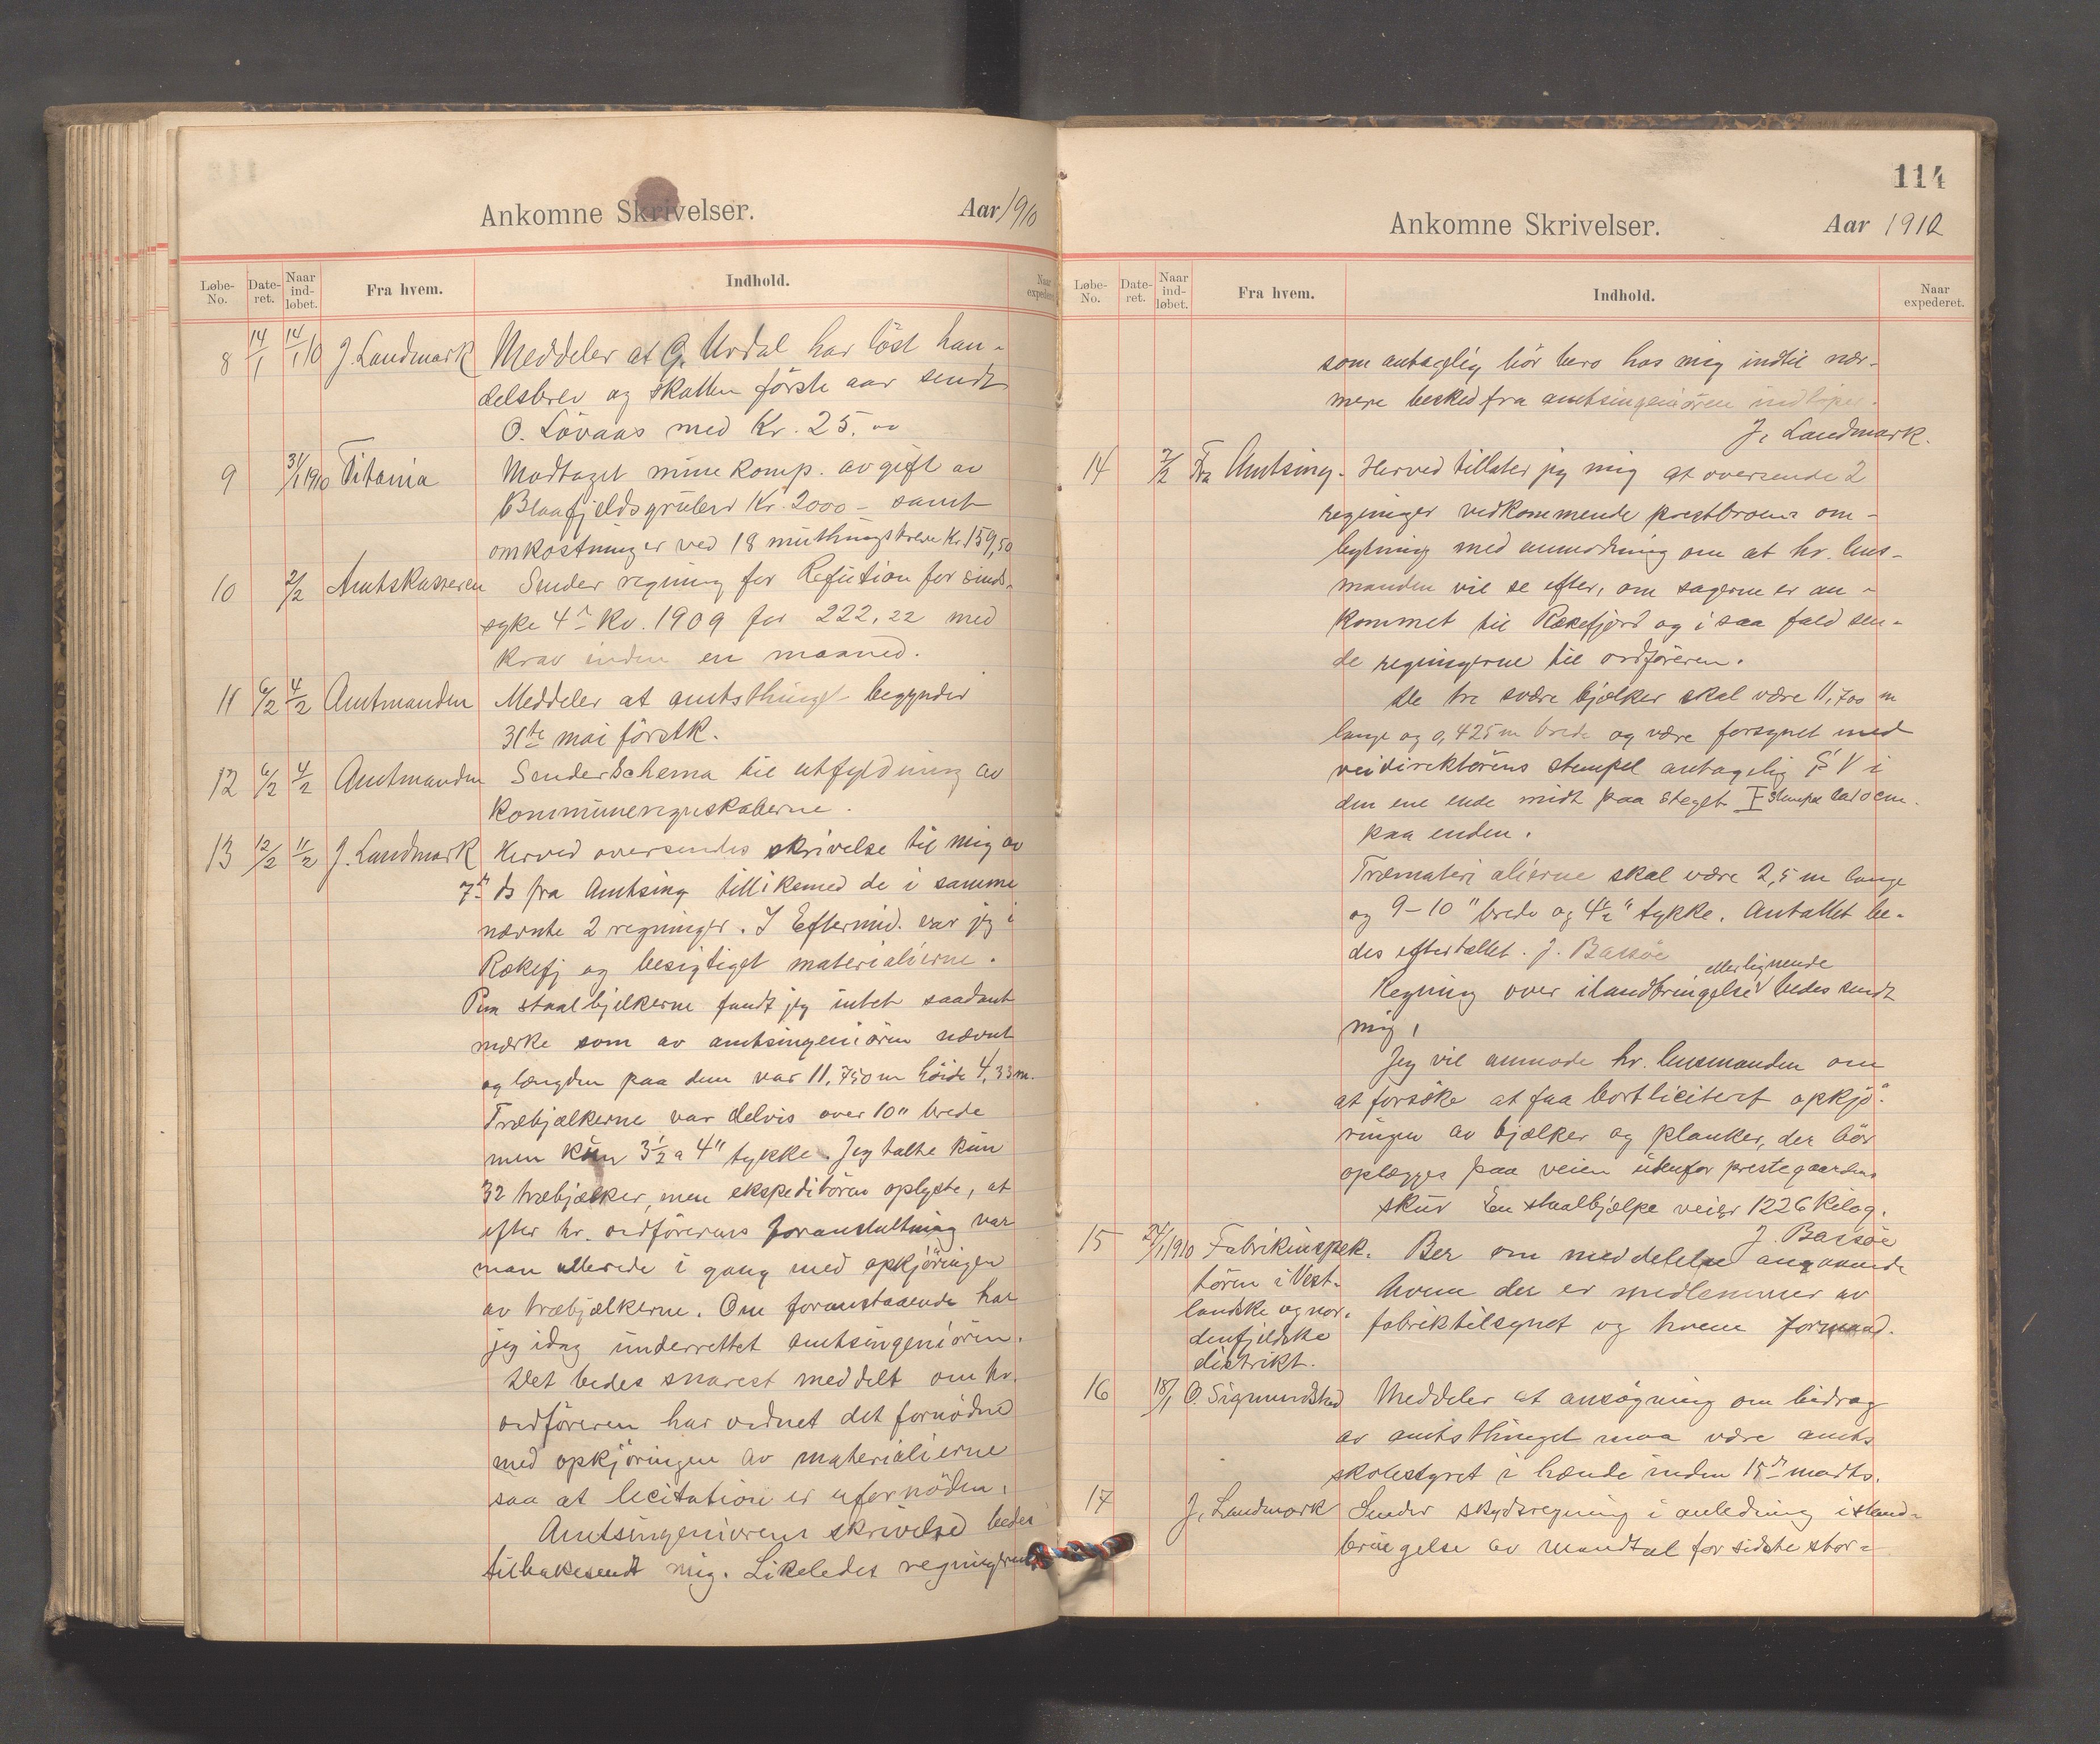 Ankomne Skrivelser.
Aar 1910
Løbe-No.
Date-ret.
Naar ind-løbet.
Fra hvem.
Indhold.
Naar expederet.
8 14/1 14/1 10 J. Landmark Meddeler at G. Urdal har löst han-
delsbrev og skatten förste aar sendt
O. Lövaas med Kr. 25.00
9 31/1 1910 Titania Modtaget mine komp. avgift av
Blaafjeldsgruber Kr. 2000 - samt
omkostninger ved 18 muthingsbreve Kr. 159,50
10 2/2 Amtskasseren Sender regning for Refution for sinds-
syke 4de Kv. 1909 for 222,22 med
krav inden en maaned.
11 6/2 4/2 Amtmanden Meddeler at amtsthinget begynder
31te mai förstk.
12 6/2 4/2 Amtmanden Sender Schema til utfyldning av
kommuneregnskaberne.
13 12/2 11/2 J. Landmark Herved oversendes skrivelse til mig av
7de ds fra Amtsing tillikemed de i samme
nævnte 2 regninger. I Eftermid. var jeg i
Rekefj og besigtiget materialierne.
Paa staalbjelkerne fandt jeg intet saadant
mærke som av amtsingeniören nævnt
og længden paa dem var 11,750 m höide 4,33 m.
Træbjælkerne var delvis over 10" brede
men kun 3½ a 4" tykke. Jeg talte kun
32 træbjælker, men ekspeditören oplyste, at
efter hr. ordförerens foranstaltning var
man allerede i gang med opkjöringen
av træbjælkerne. Om foranstaaende har
jeg idag underrettet amtsingeniören.
Det bedes snarest meddelt om hr.
ordföreren har ordnet det fornödne
med opkjöringen av materialierne
saa at licitation er ufornöden.
Amtsingeniörens skrivelse bedes
tilbakesendt mig. Likeledes regningerne
114
Ankomne Skrivelser.
Aar 1910
Løbe-No.
Date-ret.
Naar ind-løbet.
Fra hvem.
Indhold.
Naar expederet.
som antagelig bör bero hos mig indtil nær-
mere besked fra amtsingeniören indløper.
J. Landmark.
14 7/2 Fra Amtsing. Herved tillater jeg mig at oversende 2
regninger vedkommende prestbroens om-
bytning med anmodning om at hr. lens-
manden vil se efter, om sagerne er an-
kommet til Rekefjord og i saa fald sen-
de regningerne til ordföreren.
De tre svære bjelker skal være 11,700 m
lange og 0,425 m brede og være forsynet med
veidirektörens stempel antagelig § V i
den ene ende midt paa steget I stempel ca 10 cm.
paa enden.
Træmaterialierne skal være 2,5 m lange
og 9-10" brede og 4½" tykke. Antallet be-
des eftertællet. J. Bassöe
Regning over ilandbringelse eller lignende bedes sendt
mig.
Jeg vil anmode hr. lensmanden om
at forsöke at faa bortlicitert opkjö-
ringen av bjælker og planker, der bör
oplægges paa veien utenfor prestegaardens
skur. En staalbjelpe veier 1226 Kilog.
J. Bassöe
15 24/1 1910 Fabrikinspek- Ber om meddelelse angaaende
tören i Vest- hvem der er medlemmer av
landske og nor- fabriktilsynet og hvem formand.
denfjeldske
distrikt.
16 18/1 O. Sigmundstad Meddeler at ansögning om bidrag
av amtsthinget maa være amts
skolestyret i hænde inden 15de marts.
17 J. Landmark Sender skydsregning i anledning istand-
bringelse av mandtal for sidste stor-